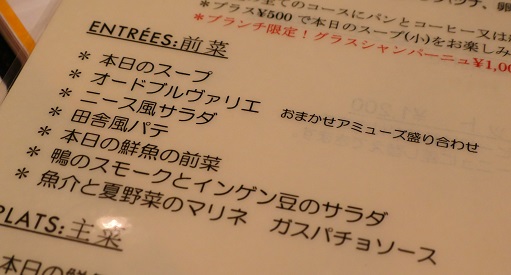 全てのコースにパンとコーヒー又は
*プラス¥500で本日のスープ(小)をお楽しみ
*ブランチ限定！グラスシャンパーニュ¥1,00
ENTRÉES:前菜
* 本日のスープ
* オードブルヴァリエ おまかせアミューズ盛り合わせ
* ニース風サラダ
* 田舎風パテ
* 本日の鮮魚の前菜
* 鴨のスモークとインゲン豆のサラダ
* 魚介と夏野菜のマリネ ガスパチョソース
PLATS:主菜
本日の